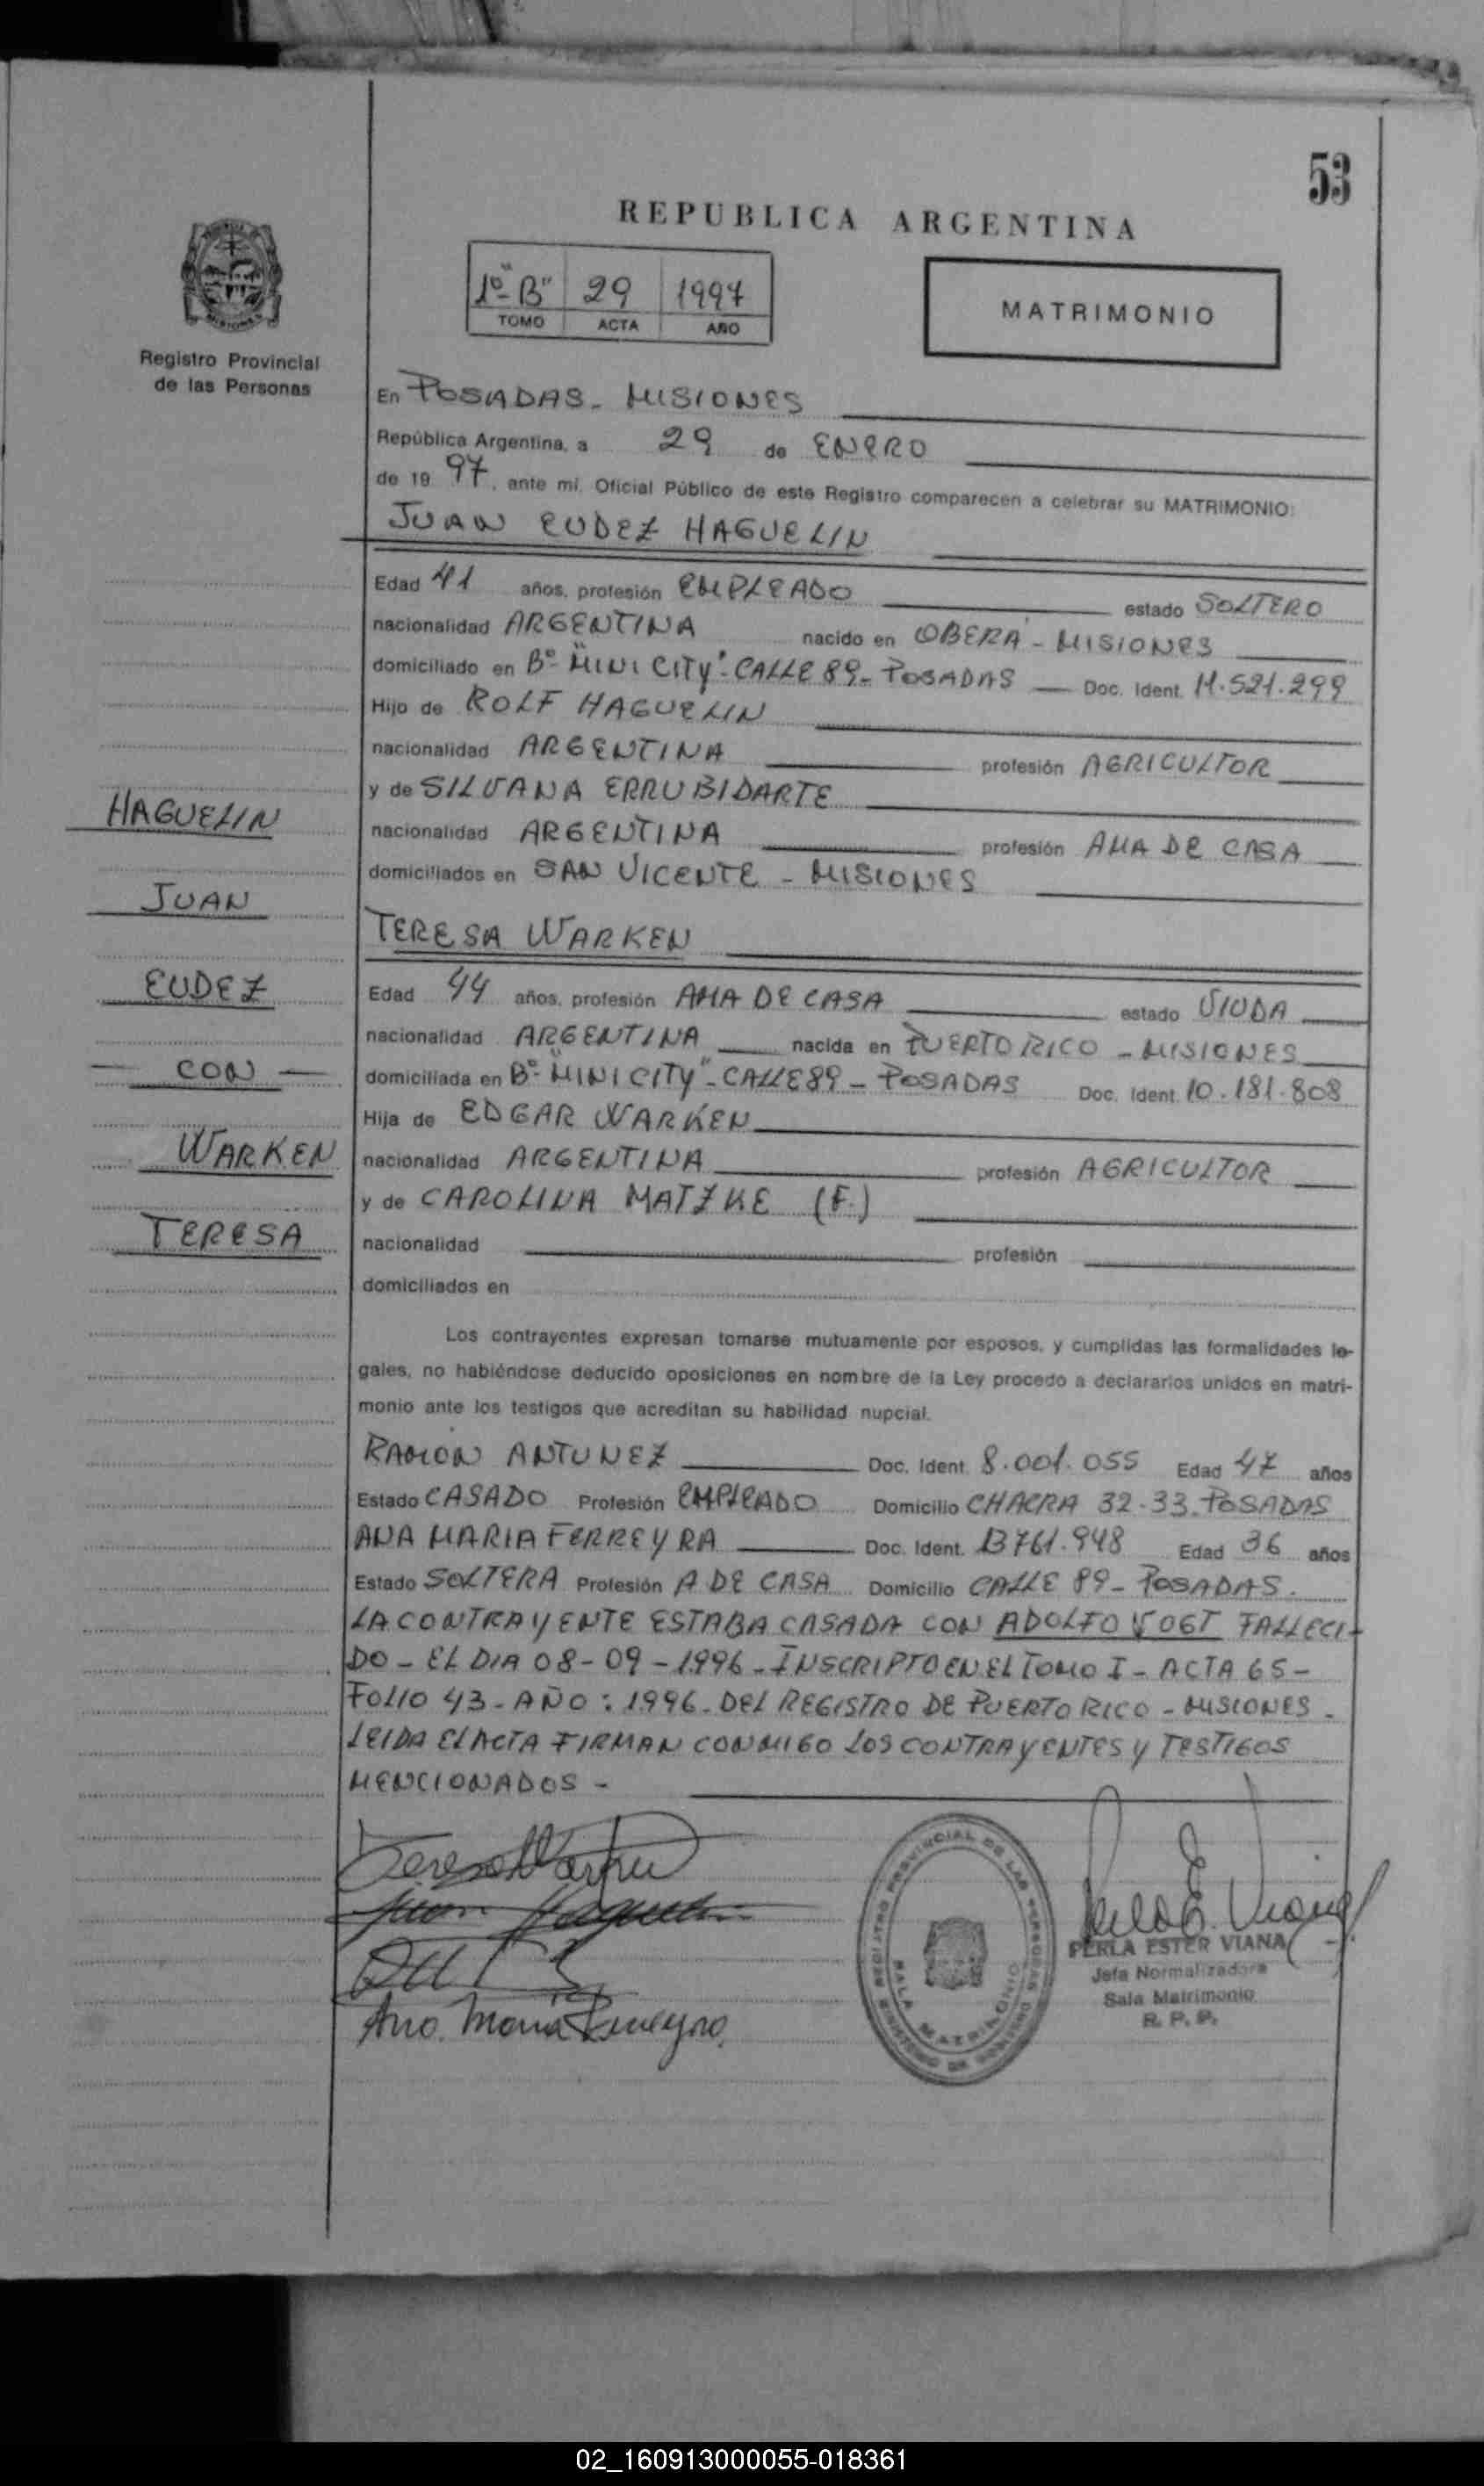 53
REPUBLICA ARGENTINA
1º "B" 29 1997
TOMO ACTA AÑO
MATRIMONIO
Registro Provincial
de las Personas
En POSADAS - MISIONES
República Argentina, a 29 de ENERO
de 19 97, ante mí, Oficial Público de este Registro comparecen a celebrar su MATRIMONIO:
JUAN EUDEZ HAGUELIN
Edad 41 años, profesión EMPLEADO estado SOLTERO
nacionalidad ARGENTINA nacido en OBERA - MISIONES
domiciliado en Bº "MINI CITY" - CALLE 89 - POSADAS Doc. Ident. 11.521.299
Hijo de ROLF HAGUELIN
nacionalidad ARGENTINA profesión AGRICULTOR
y de SILVANA ERRUBIDARTE
nacionalidad ARGENTINA profesión AMA DE CASA
domiciliados en SAN VICENTE - MISIONES
HAGUELIN
JUAN
EUDEZ
CON
WARKEN
TERESA
TERESA WARKEN
Edad 44 años, profesión AMA DE CASA estado VIUDA
nacionalidad ARGENTINA nacida en PUERTO RICO - MISIONES
domiciliada en Bº "MINI CITY" - CALLE 89 - POSADAS Doc. Ident. 10.181.808
Hija de EDGAR WARKEN
nacionalidad ARGENTINA profesión AGRICULTOR
y de CAROLINA MATZKE (F.)
nacionalidad profesión
domiciliados en
Los contrayentes expresan tomarse mutuamente por esposos, y cumplidas las formalidades le-
gales, no habiéndose deducido oposiciones en nombre de la Ley procedo a declararlos unidos en matri-
monio ante los testigos que acreditan su habilidad nupcial.
RAMON ANTUNEZ Doc. Ident. 8.001.055 Edad 47 años
Estado CASADO Profesión EMPLEADO Domicilio CHACRA 32-33. POSADAS
ANA MARIA FERREYRA Doc. Ident. 13761.948 Edad 36 años
Estado SOLTERA Profesión A DE CASA Domicilio CALLE 89 - POSADAS.
LA CONTRAYENTE ESTABA CASADA CON ADOLFO VOGT FALLECI-
DO - EL DIA 08-09-1996 - INSCRIPTO EN EL TOMO I - ACTA 65 -
FOLIO 43 - AÑO: 1996 - DEL REGISTRO DE PUERTO RICO - MISIONES -
LEIDA EL ACTA FIRMAN CONMIGO LOS CONTRAYENTES Y TESTIGOS
MENCIONADOS -
Teresa Warken
Juan Haguelin
Ana Maria Ferreyra
REGISTRO PROVINCIAL DE LAS PERSONAS
MINISTERIO DE GOBIERNO
SALA MATRIMONIO
Perla E. Viana
PERLA ESTER VIANA
Jefa Normalizadora
Sala Matrimonio
R. P. P.
02_160913000055-018361